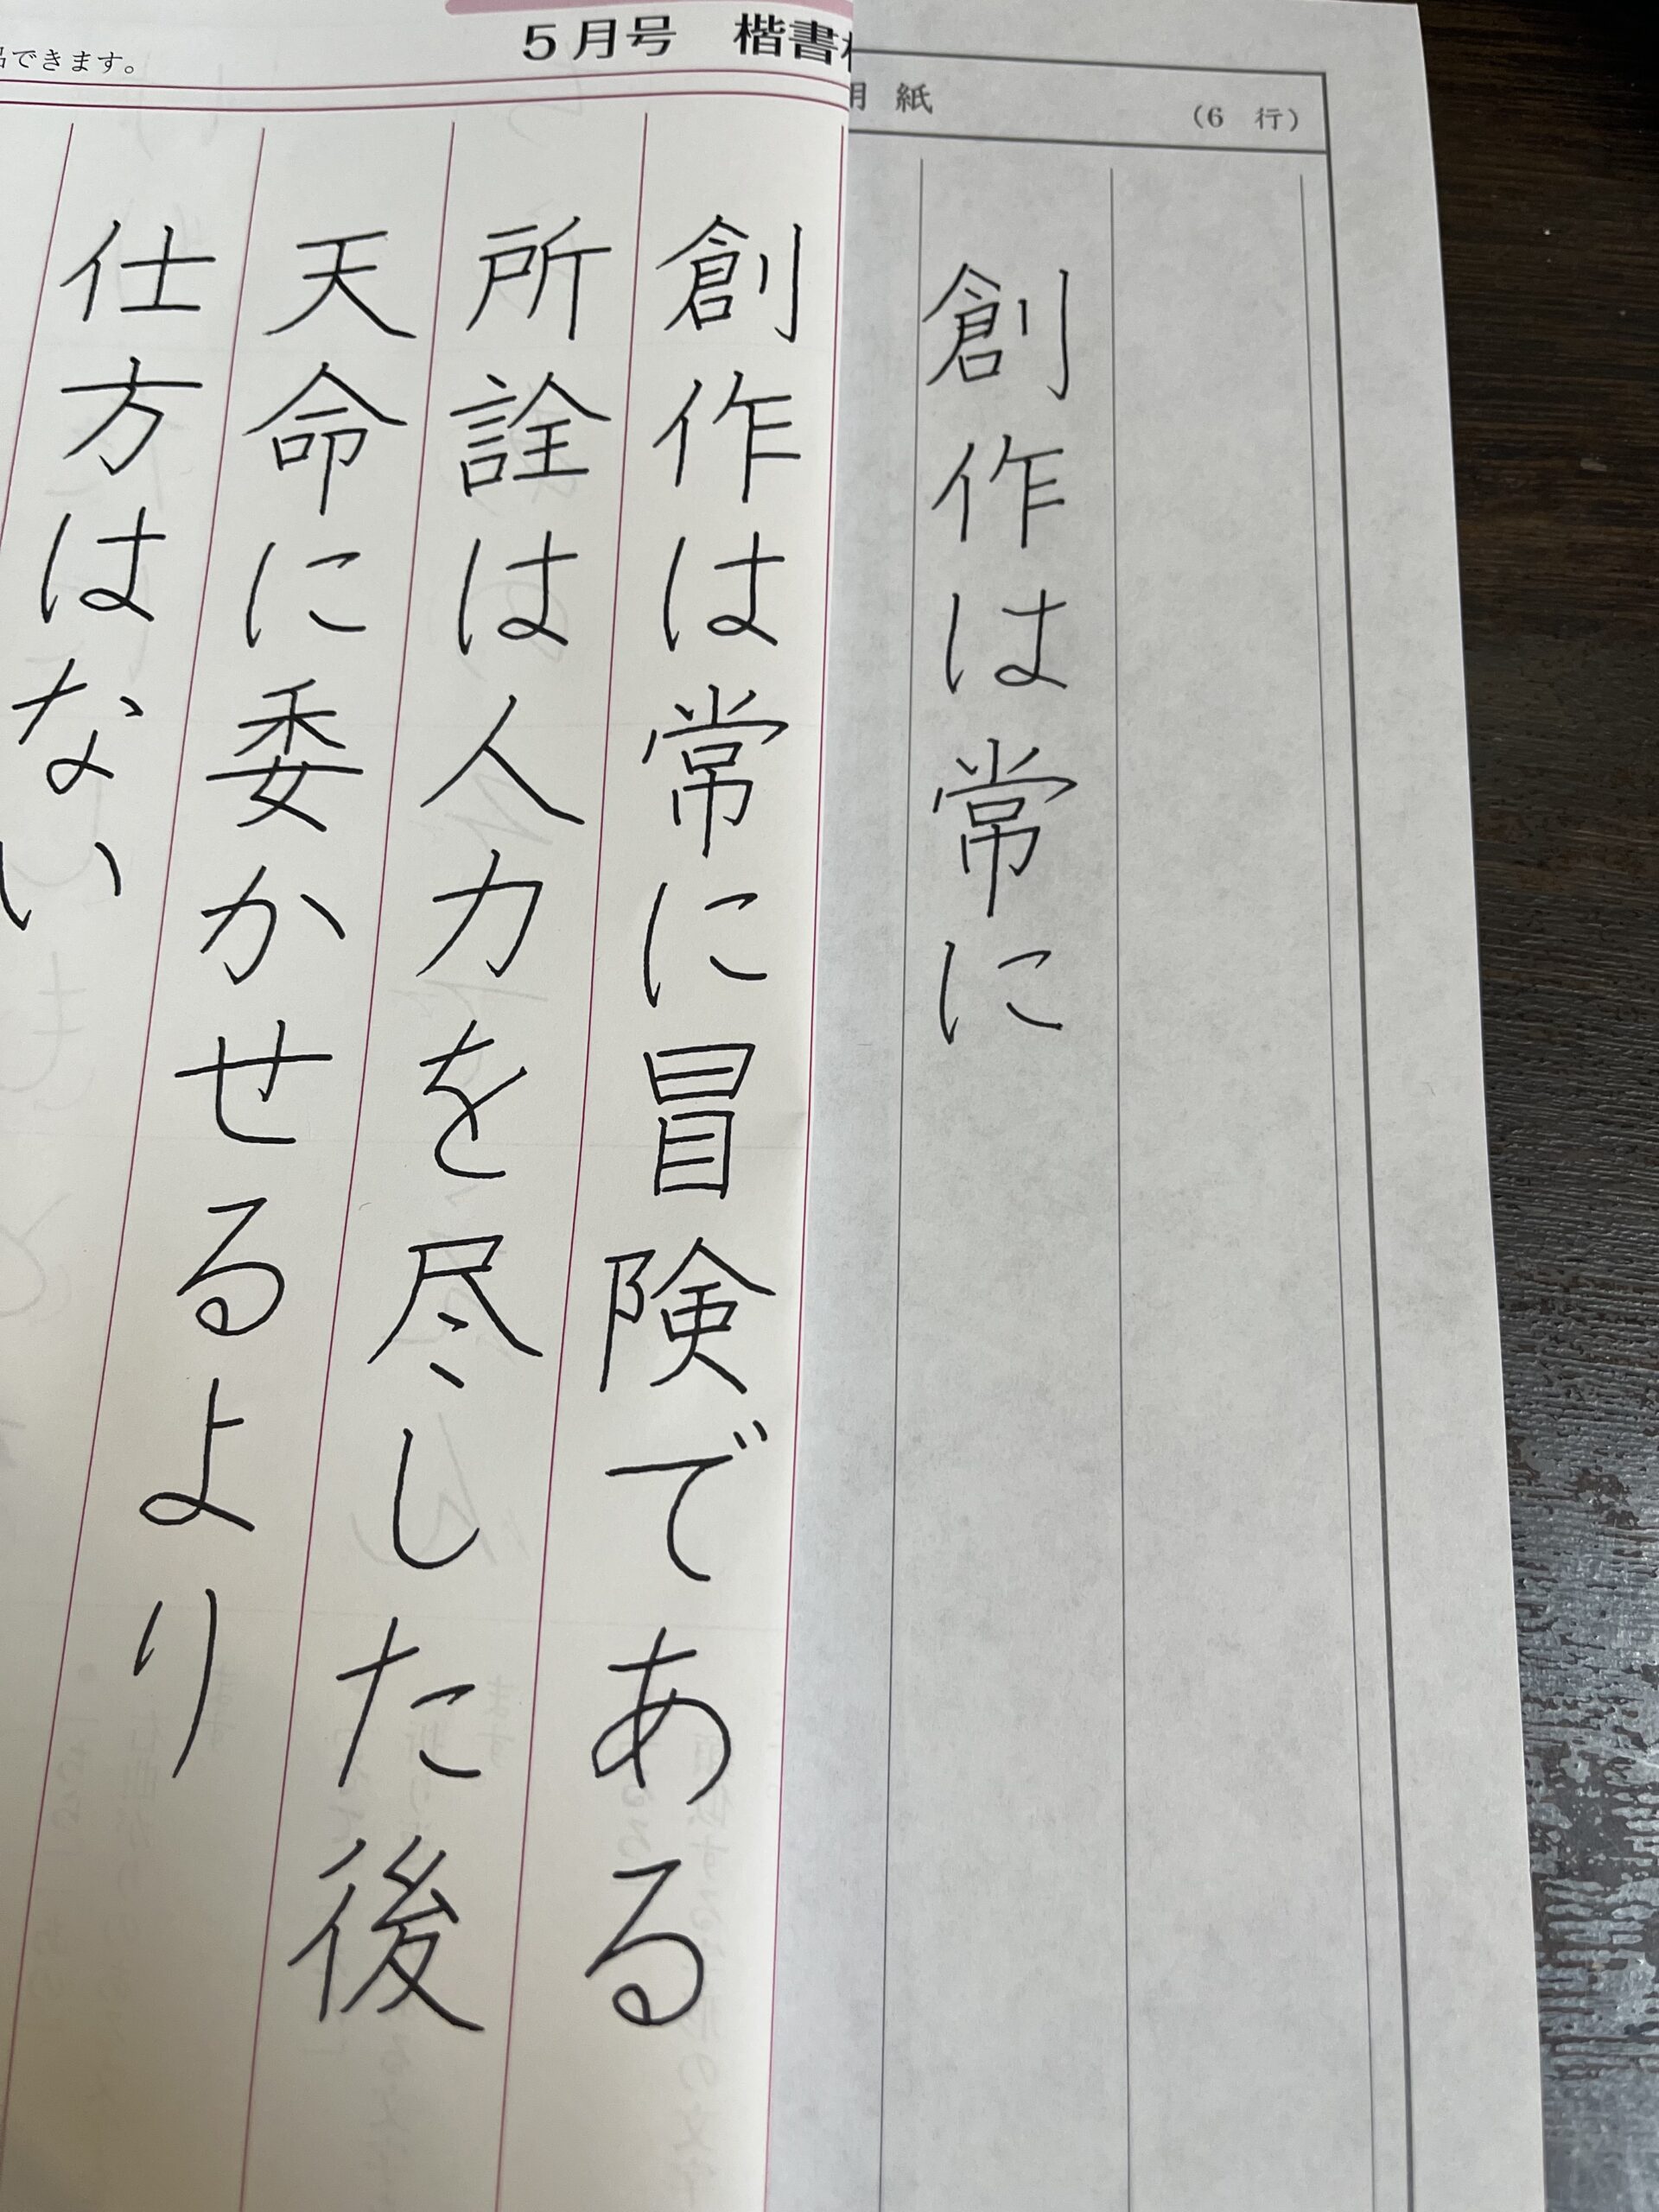 5月号 楷書
できます。
創作は常に冒険である
所詮は人力を尽した後
天命に委かせるより
仕方はない
用紙
(6 行)
創作は常に